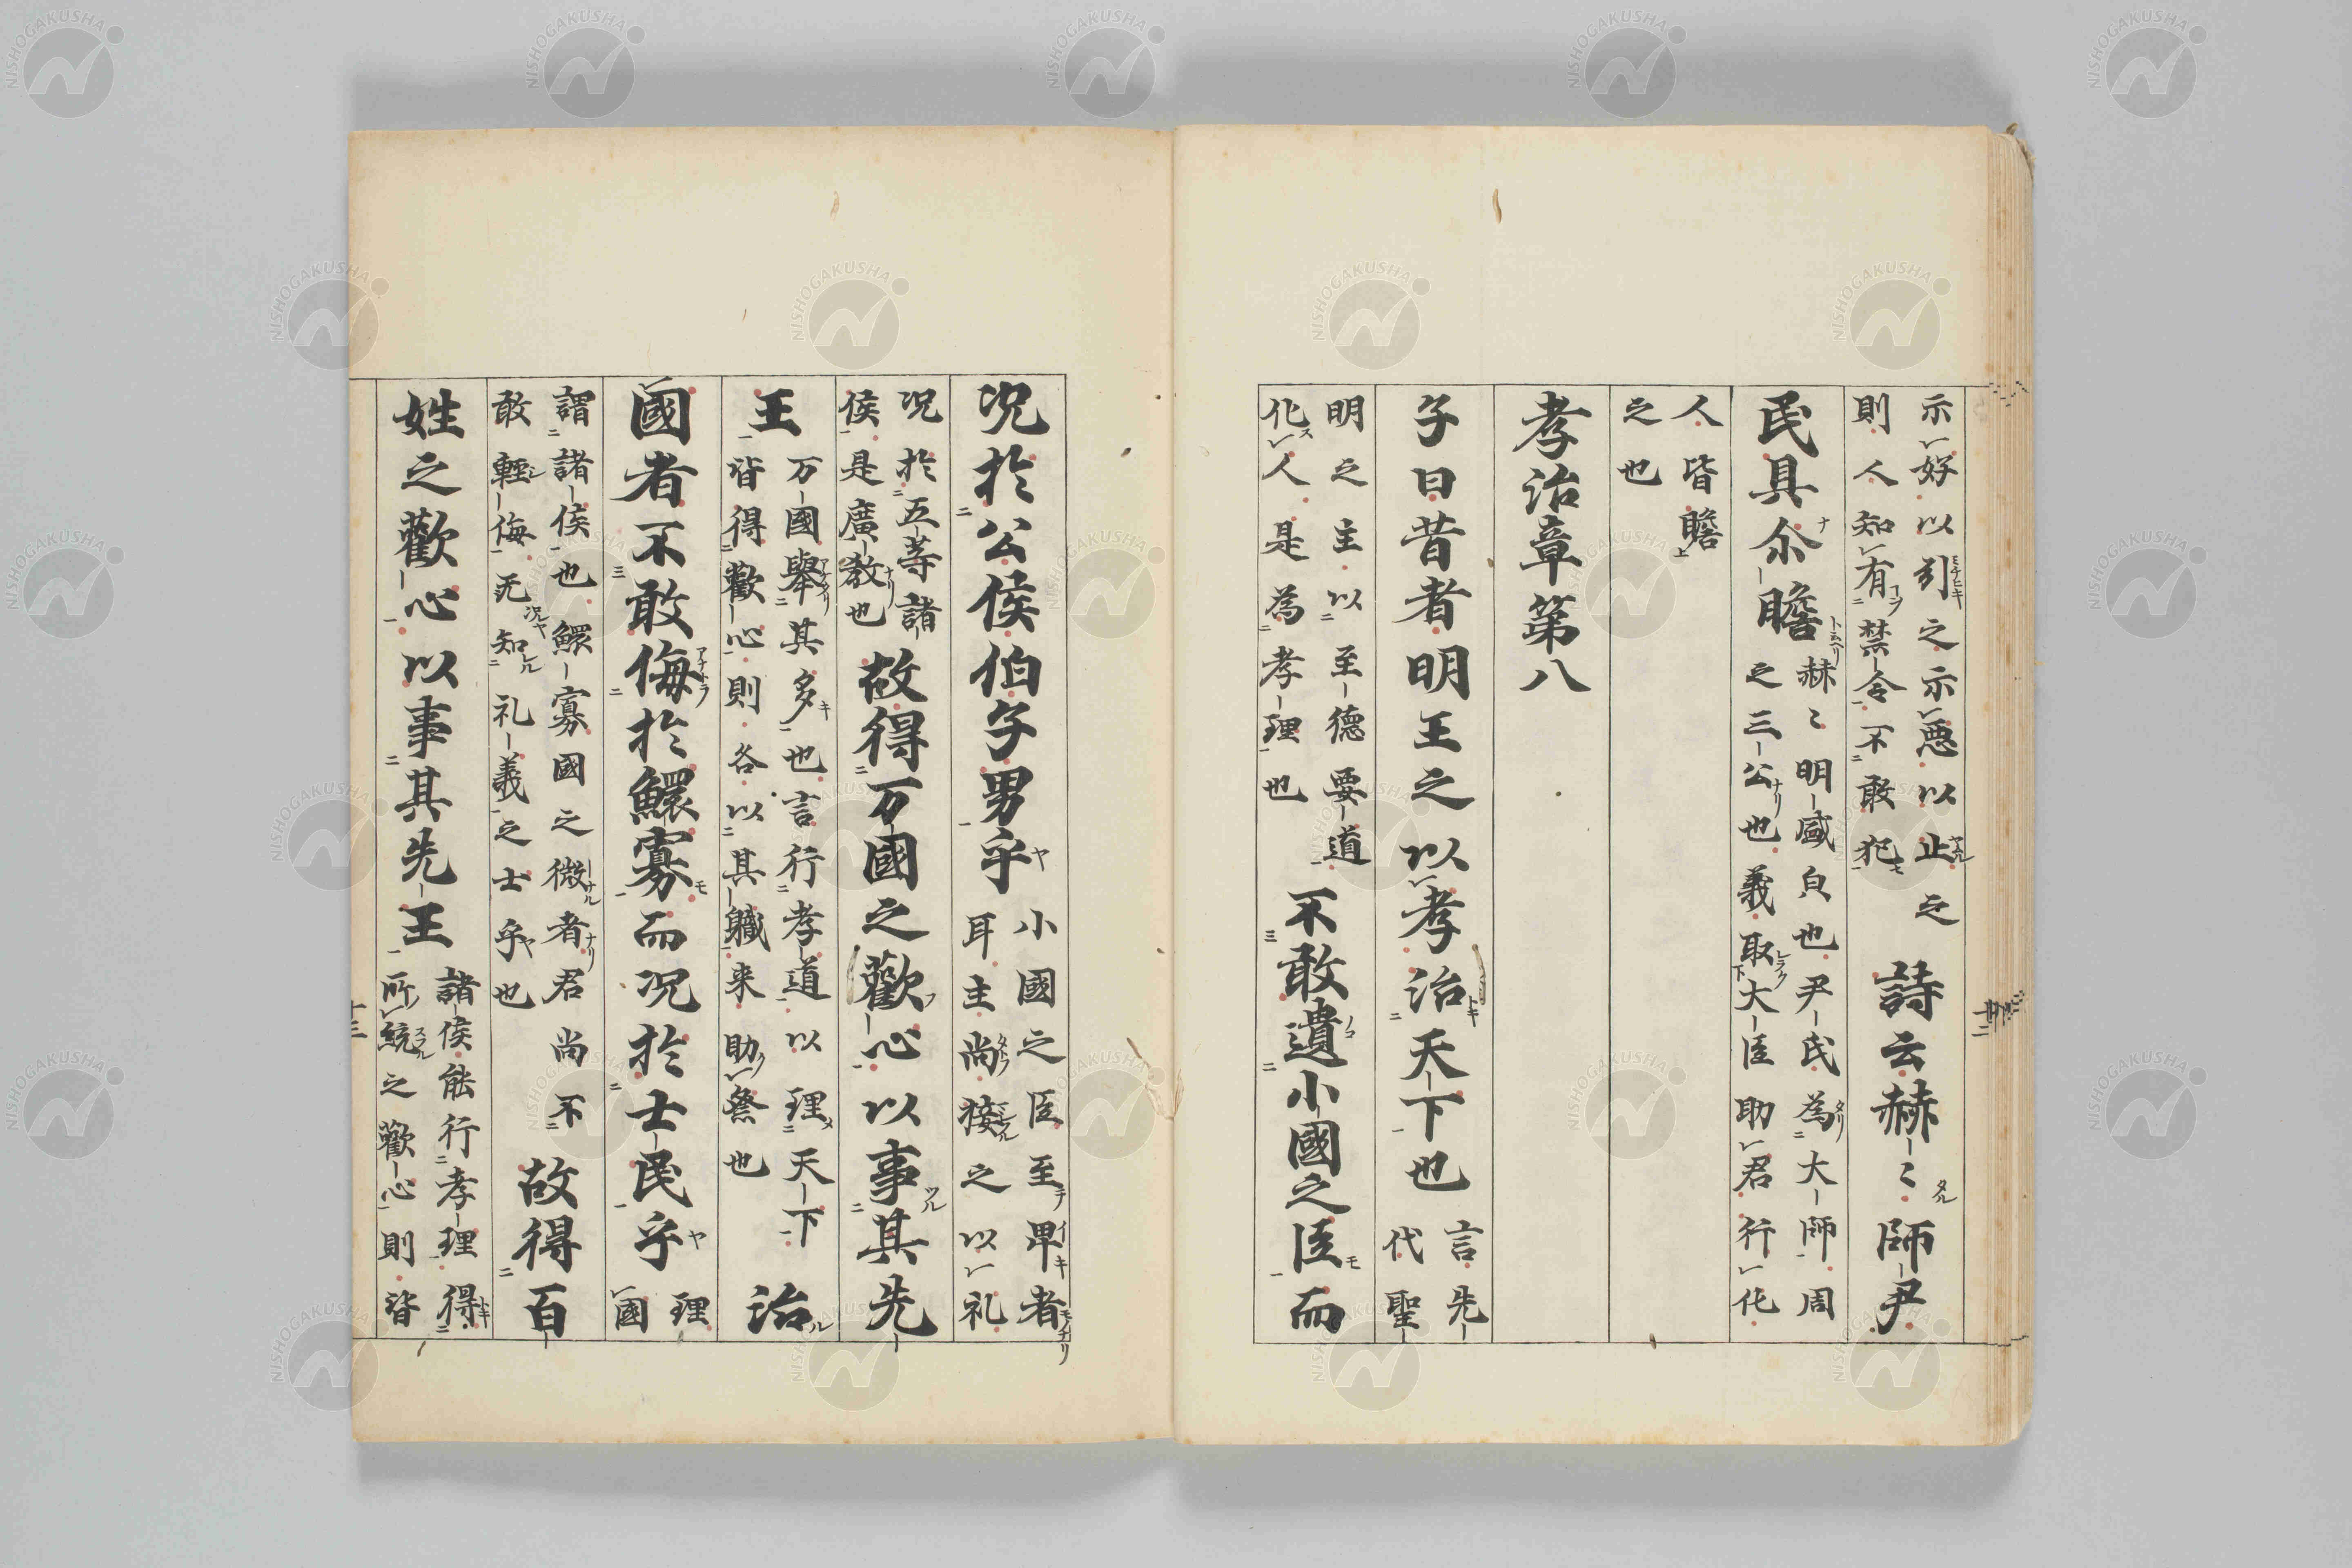 示好以引之示惡以止之
則人知有禁令不敢犯
詩云赫〻師尹
民具尒瞻
赫〻明盛皃也尹氏為大師周
之三公也義取大臣助君行化
人皆瞻
之也
孝治章第八
子曰昔者明王之以孝治天下也
言先
代聖
明之主以至德要道
化人是為孝理也
不敢遺小國之臣而
况於公侯伯子男乎
小國之臣至卑者
耳主尚接之以礼
况於五等諸
侯是廣教也
故得万國之歡心以事其先
王
万國舉其多也言行孝道以理天下
皆得歡心則各以其軄来助祭也
治
國者不敢侮於鰥寡而况於士民乎
理
國
謂諸侯也鰥寡國之微者君尚不
敢輕侮无知礼義之士乎也
故得百
姓之歡心以事其先王
諸侯能行孝理得
所統之歡心則皆
十二
十三
NISHOGAKUSHA